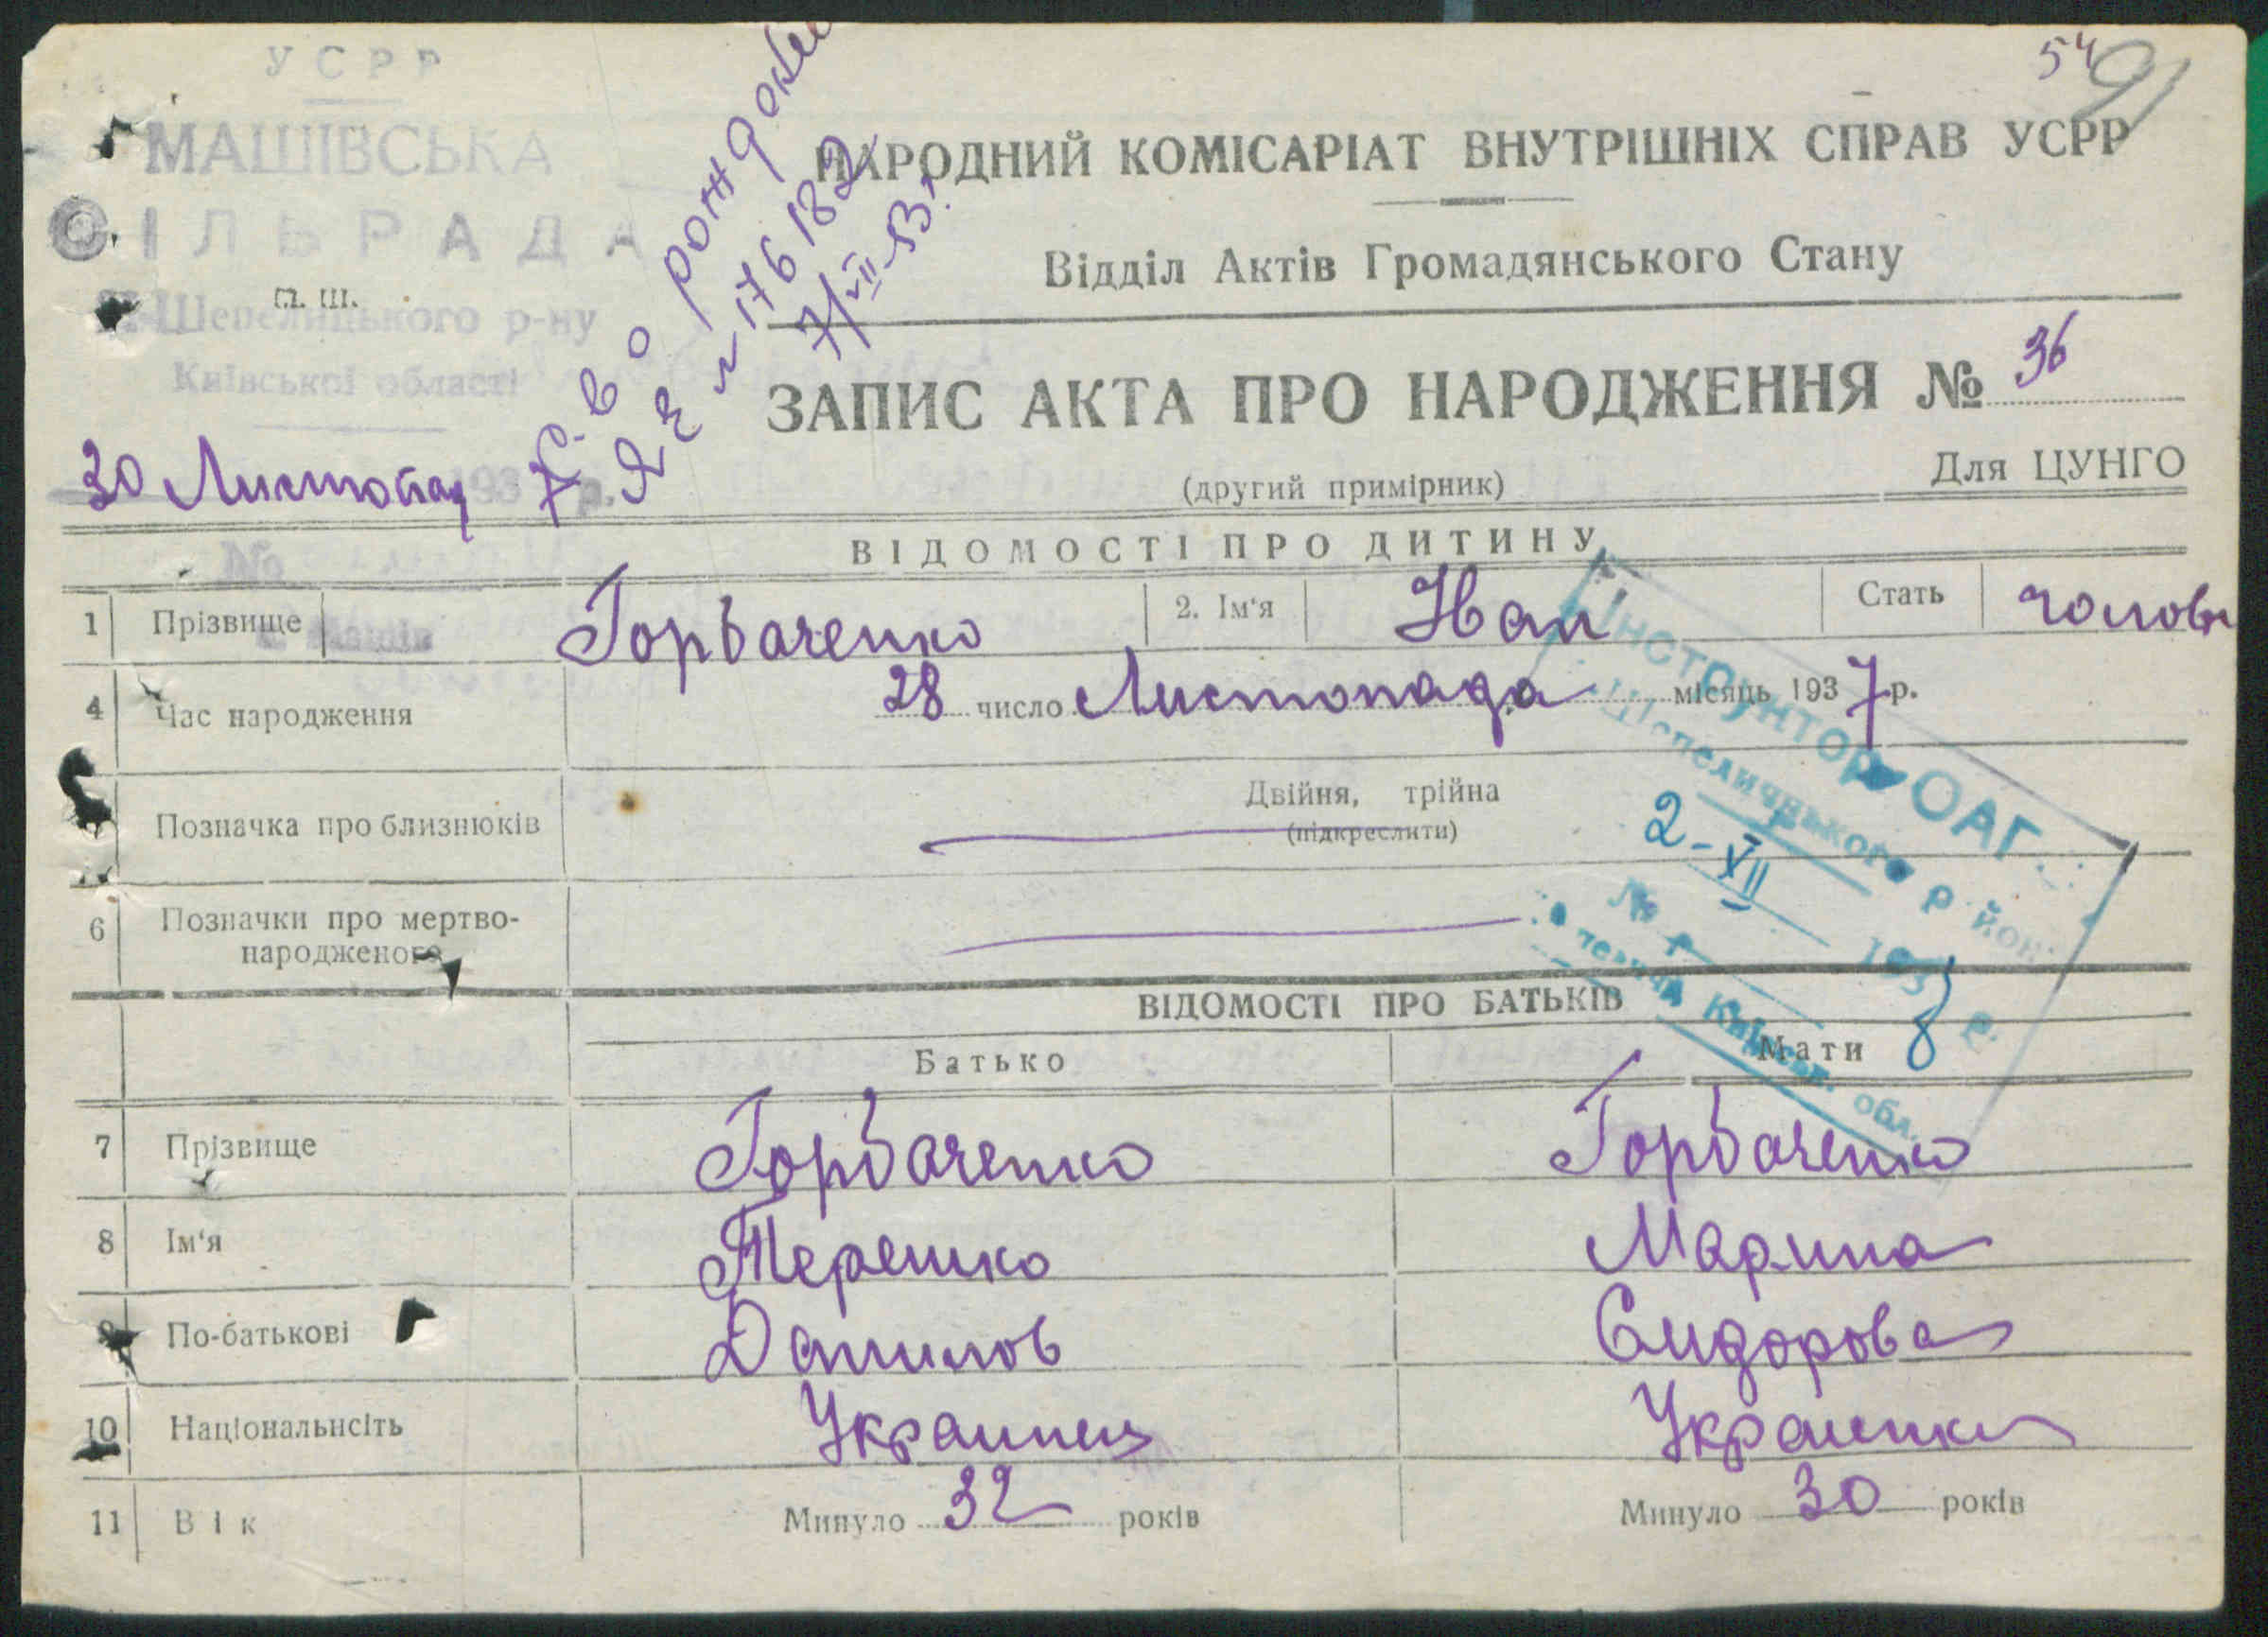 54
91
УСРР
МАШІВСЬКА
СІЛЬРАДА
П. Ш.
Шепелицького р-ну
Київської області
30 Листопад 1937 р.
№
с. Машів
С-во о рожд
ЯЕ № 176182
7/VII-53 г.
НАРОДНИЙ КОМІСАРІАТ ВНУТРІШНІХ СПРАВ УСРР
Відділ Актів Громадянського Стану
ЗАПИС АКТА ПРО НАРОДЖЕННЯ № 36
(другий примірник)
Для ЦУНГО
ВІДОМОСТІ ПРО ДИТИНУ
1 Прізвище Горбаченко 2. Ім'я Иван Стать чолов
4 Час народження 28 число Листопада місяць 1937 р.
Позначка про близнюків Двійня, трійна
(підкреслити)
6 Позначки про мертво-
народженого
Інструктор ОАГС
Шепелицького район
2-XII 1938 р.
№
Київськ. обл.
ВІДОМОСТІ ПРО БАТЬКІВ
Батько Мати
7 Прізвище Горбаченко Горбаченко
8 Ім'я Терешко Марина
9 По-батькові Данилов Сидорова
10 Національнсіть Украинец Украінка
11 Вік Минуло 32 років Минуло 30 років